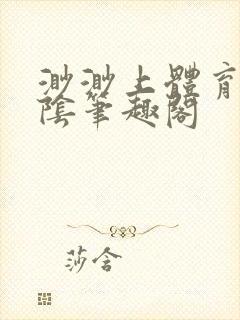 渺渺上體育
陰筆趣閣
莎含